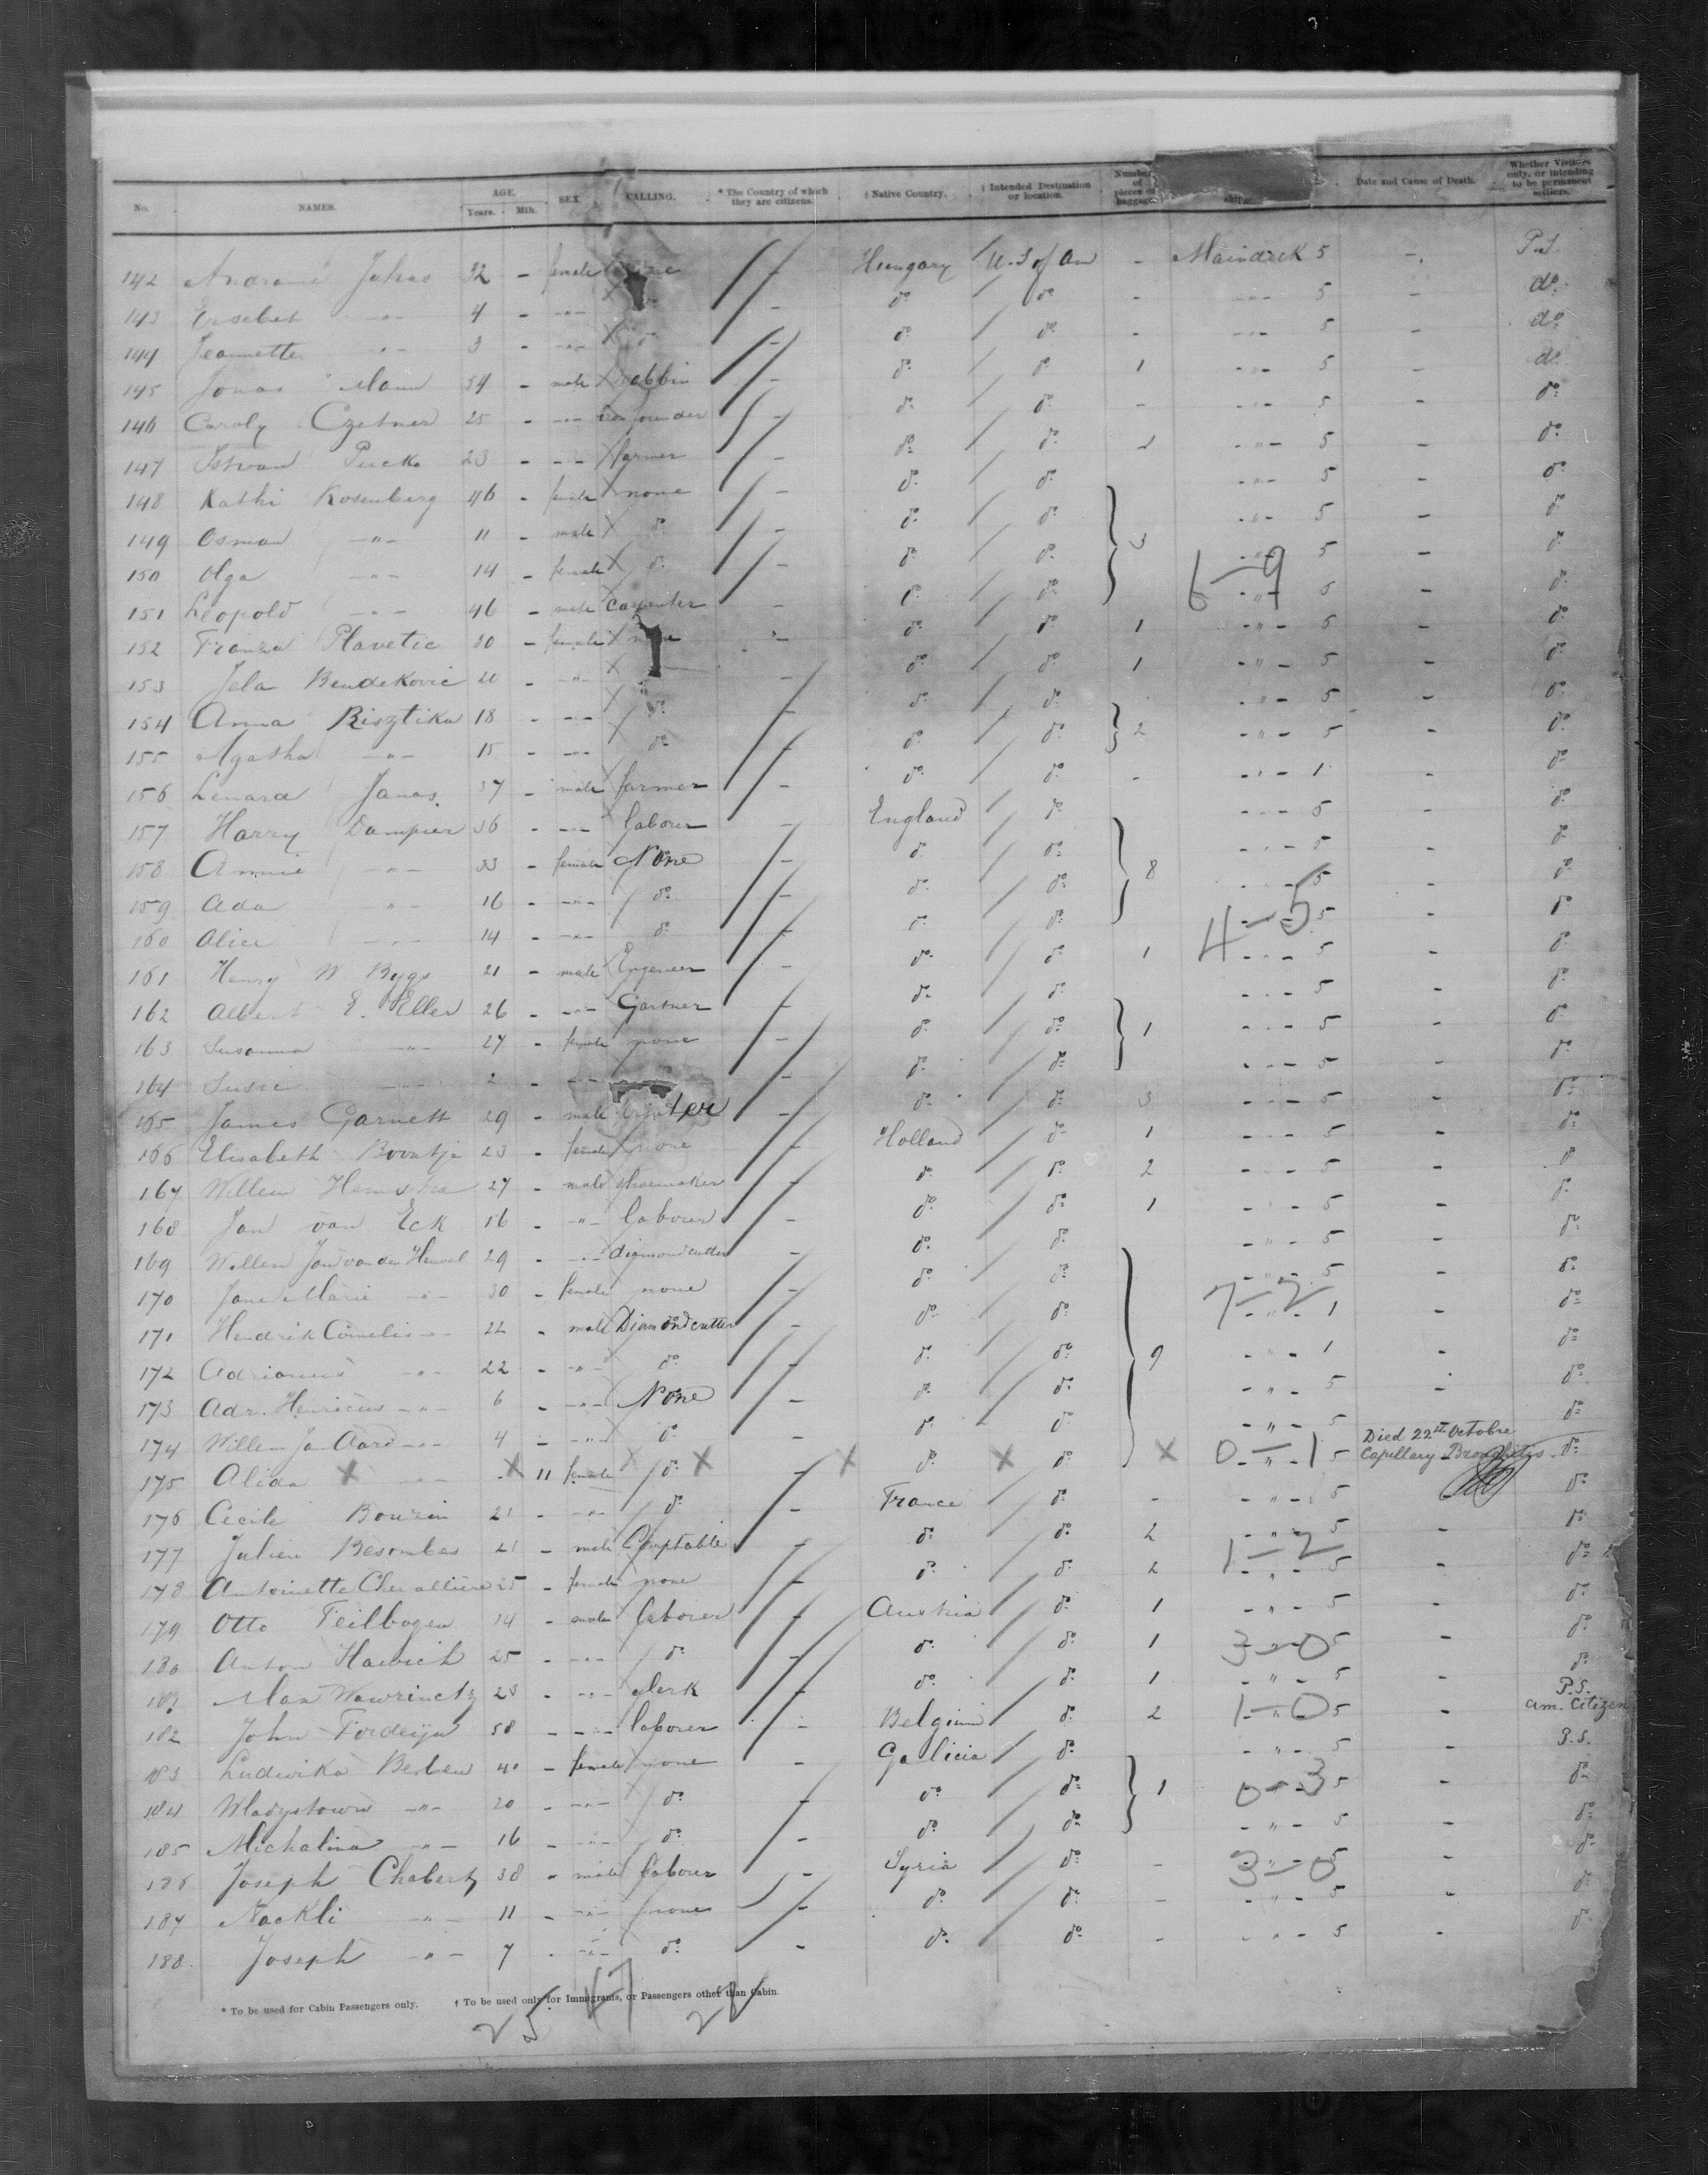 No. NAMES. AGE. Years. Mth. SEX. CALLING. * The Country of which they are citizens. † Native Country. † Intended Destination or location. Number of pieces of baggage Date and Cause of Death. Whether Visitors only, or intending to be permanent settlers.
142 Juhas 32 - female - Hungary U.S of Am - Maindeck 5 - P.S.
143 Ersebet -"- 4 - -"- do - do do - -"- 5 - do
144 Jeannette -"- 3 - -"- do - do do - -"- 5 - do
145 Jonas Mann 34 - male rabbin - do do 1 -"- 5 - do
146 Caroly Czetner 25 - -"- iron founder - do do - -"- 5 - do
147 Istvan Pucko 23 - -"- farmer - do do -"- 5 - do
148 Kathi Rosenberg 46 - female none - do do -"- 5 - do
149 Osman -"- 11 - male do - do do 3 -"- 5 - do
150 Olga -"- 14 - female do - do do -"- 5 - do
151 Leopold -"- 46 - male carpenter - do do 6-9 -"- 5 - do
152 Franza Plavetic 30 - female none - do do 1 -"- 5 - do
153 Jela Bendekovic 20 - -"- - do do 1 -"- 5 - do
154 Anna Risztika 18 - -"- do - do do -"- 5 - do
155 Agatha -"- 15 - -"- do - do do 2 -"- 5 - do
156 Lenard Janos 37 - male farmer - do do - -"- 1 - do
157 Harry Dampier 36 - -"- laborer - England do -"- 5 do
158 Annie -"- 33 - female None - do do 8 -"- 5 - do
159 Ada -"- 16 - -"- do - do do -"- 5 - do
160 Alice -"- 14 - -"- do - do do 4-5 -"- 5 - do
161 Henry W. Bygs 21 - male Engeneer - do do 1 -"- 5 - do
162 Albert E. Eller 26 - -"- Gartner - do do -"- 5 - do
163 Susanna -"- 27 - female none - do do 1 -"- 5 - do
164 Susie -"- 2 - -"- - do do -"- 5 - do
165 James Garnett 29 - male - do do 3 -"- 5 - do
166 Elisabeth 23 - female none - Holland do 1 -"- 5 - do
167 Willem 27 - male shoemaker - do do 2 -"- 5 - do
168 Jan van Eck 16 - -"- laborer - do do 1 -"- 5 - do
169 Willem Jan van den Heuvel 29 - -"- diamondcutter - do do -"- 5 - do
170 Jane Marie -"- 30 - female none - do do 7-2 -"- 5 - do
171 Hendrik Cornelis -"- 22 - male Diamondcutter - do do -"- 1 - do
172 Adrianus -"- 22 - -"- do - do do 9 -"- 1 - do
173 Adr. Henricus -"- 6 - -"- None - do do -"- 5 - do
174 Willem Jan Aard -"- 4 - -"- do - do do -"- 5 Died 22st Octobre do
175 Alida X -"- - X 11 female X do X - X do X do X 0-1 -"- 5 Capellary Bronghitys. do
176 Cecile Bouzin 21 - -"- do - France do - -"- 5 do
177 Julien Besombes 21 - male Comptable - do do 2 -"- 5 - do
178 Antoinette Chevalliere 25 - female none - do do 2 1-2 -"- 5 - do
179 Otto Feilbogen 14 - male laborer - Austria do 1 -"- 5 - do
180 Anton Hawich 25 - -"- do - do do 1 3-0 -"- 5 - do
181 Max Wawrinetz 23 - -"- clerk - do do 1 -"- 5 - do
182 John Fordeyn 58 - -"- laborer - Belgium do 2 1-0 5 - P.S. am. Citizen
183 Ludwika Berben 40 - female none - Galicia do -"- 5 - P.S.
184 -"- 20 - -"- do - do do 1 0-3 5 - do
185 Michalina -"- 16 - -"- do - do do -"- 5 - do
186 Joseph Chabert 38 - male labour - Syria do - 3-0 -"- 5 - do
187 Nackli -"- 11 - -"- none - do do - -"- 5 - do
188 Joseph -"- 7 - -"- do - do do - -"- 5 - do
* To be used for Cabin Passengers only. † To be used only for Immigrants, or Passengers other than Cabin.